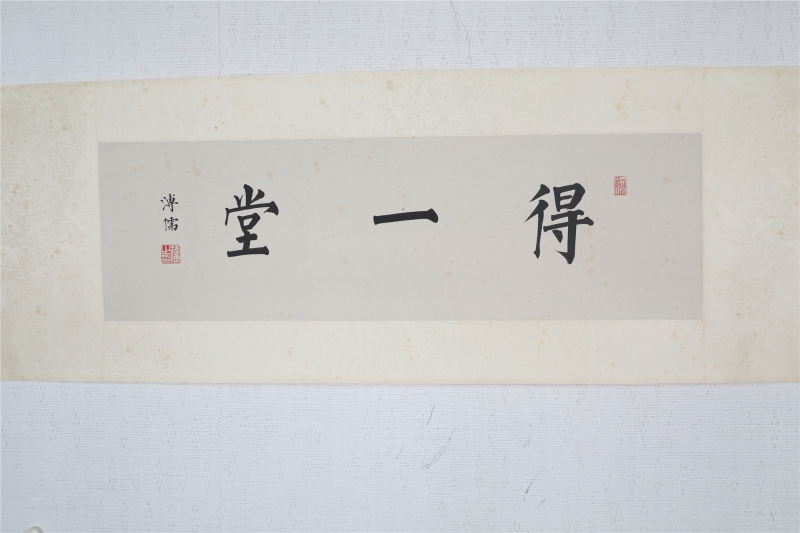 得一堂
溥儒